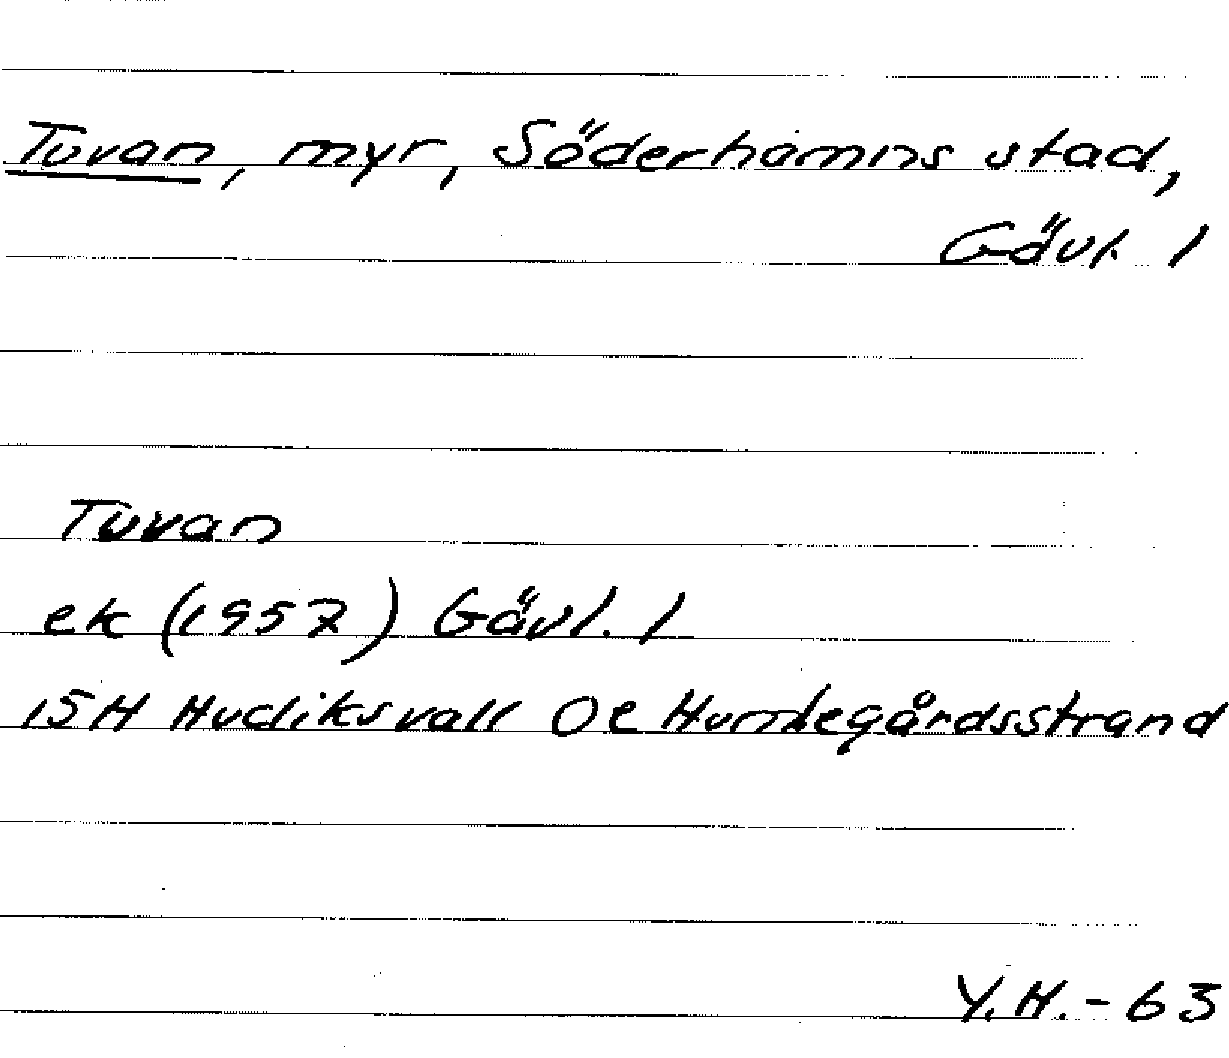 Tuvan, myr, Söderhamns stad,
Gävl. 1
Tuvan
ek (1957) Gävl. 1
15H Hudiksvall 0e Humlegårdsstrand
Y.H.-63